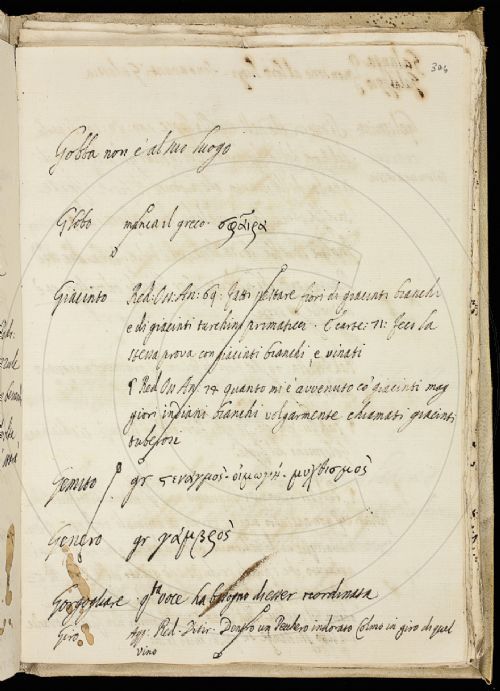 304
Gobba non è al suo luogo
Globo manca il greco. σφαῖρα
Giacinto Red. Oss. An: 69. fatti pestare fiori di giacinti bianchi
e di giacinti turchini primaticci. E carte: 71: feci la
stessa prova con giacinti bianchi, e vinati
Red Oss An. 74 quanto mi è avvenuto co' giacinti mag
giori indiani bianchi volgarmente chiamati giacinti
tuberosi
Gemito gr στεναγμὸς. οἰμωγή. μυχθισμὸς
Genero gr γάμβρος
Gorgogliare qta voce ha bisogno d'esser riordinata
Giro Agg. Red. Ditir. Dentro un Pecchero indorato Colmo in giro di quel
vino